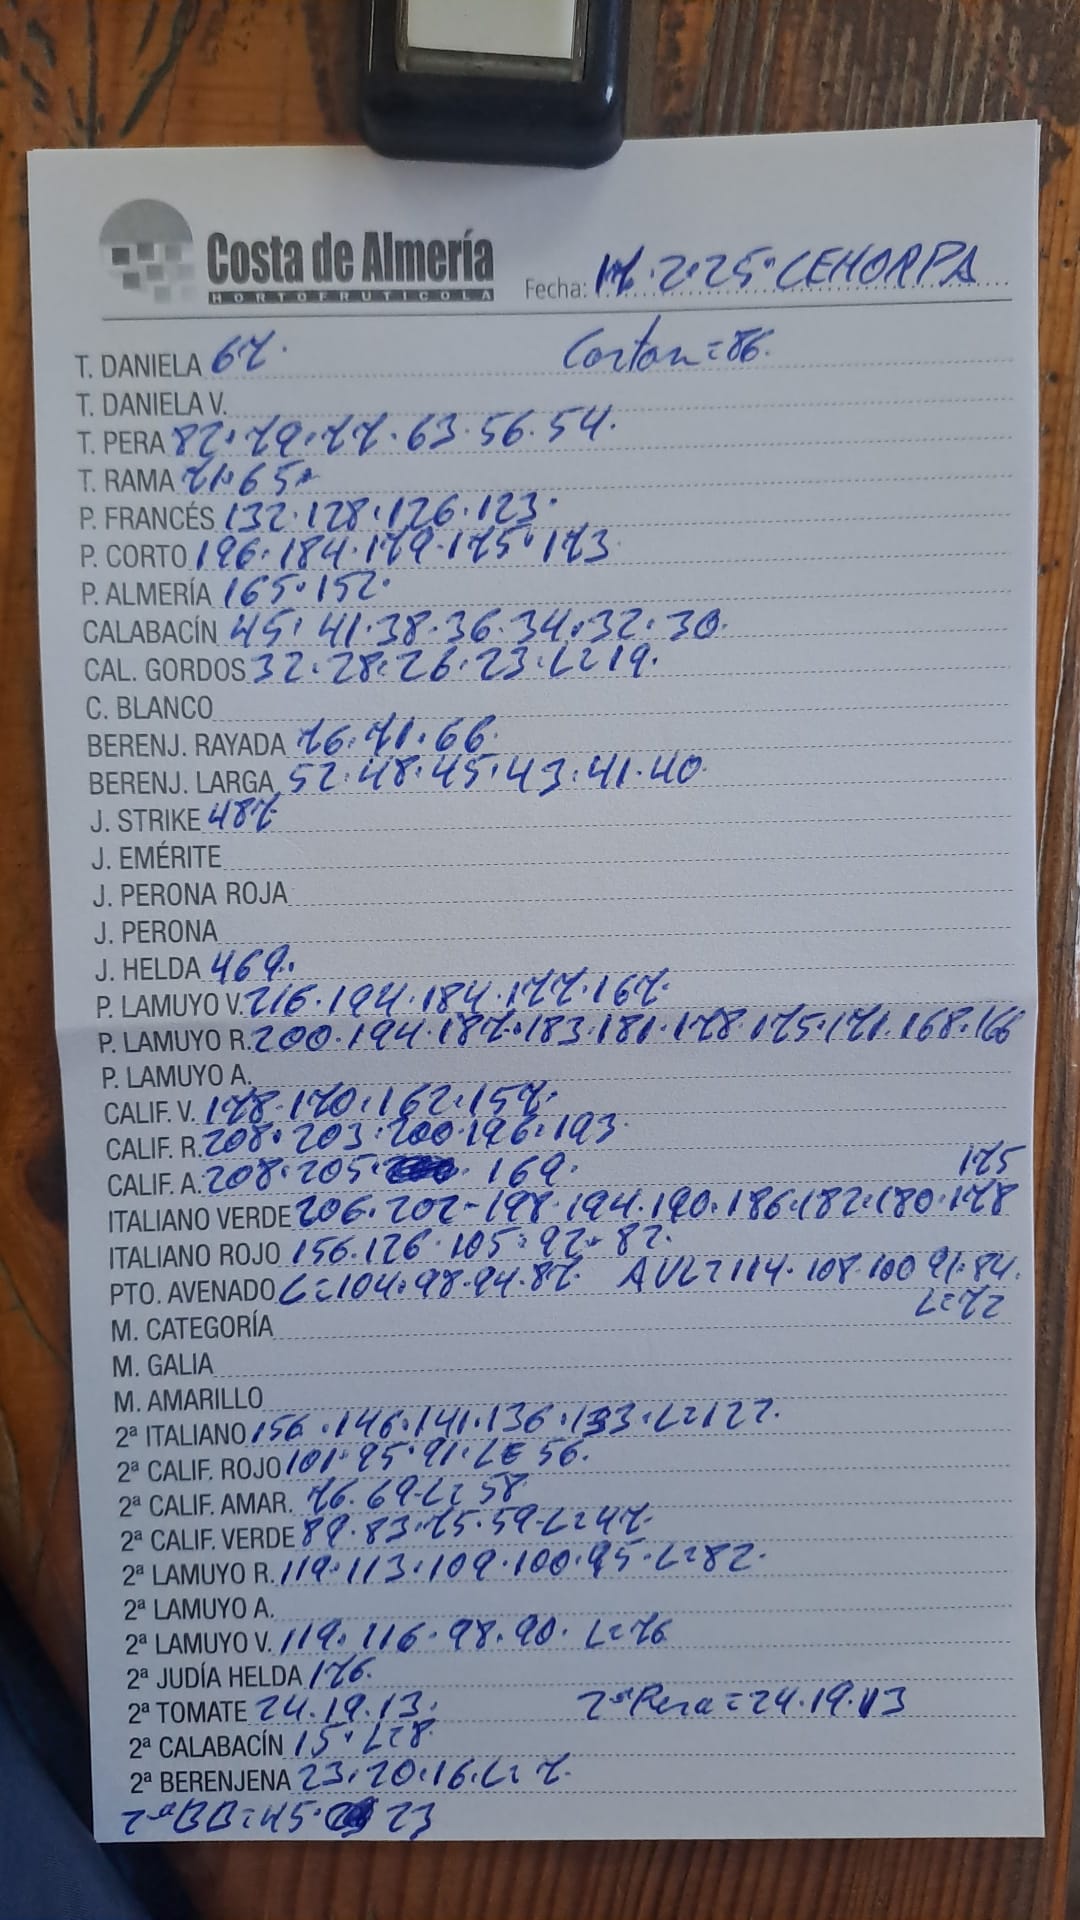 Costa de Almería
HORTOFRUTICOLA
Fecha: 17.2.25. CEHORPA
T. DANIELA 67. Cortan = 86.
T. DANIELA V.
T. PERA 82. 79. 77. 63. 56. 54.
T. RAMA 71. 65.
P. FRANCÉS 132. 128. 126. 123.
P. CORTO 196. 184. 179. 175. 173
P. ALMERÍA 165. 152.
CALABACÍN 45. 41. 38. 36. 34. 32. 30.
CAL. GORDOS 32. 28. 26. 23. L=19.
C. BLANCO
BERENJ. RAYADA 76. 71. 66.
BERENJ. LARGA 52. 48. 45. 43. 41. 40.
J. STRIKE 487
J. EMÉRITE
J. PERONA ROJA
J. PERONA
J. HELDA 469.
P. LAMUYO V. 216. 194. 184. 177. 167.
P. LAMUYO R. 200. 194. 187. 183. 181. 178. 175. 171. 168. 166
P. LAMUYO A.
CALIF. V. 178. 170. 162. 157.
CALIF. R. 208. 203. 200. 196. 193.
CALIF. A. 208. 205. 169.
175
ITALIANO VERDE 206. 202- 198. 194. 190. 186. 182. 180. 178
ITALIANO ROJO 156. 126. 105. 92. 82.
PTO. AVENADO L=104. 98. 94. 87. AVL=114. 108. 100 91. 84.
L=72
M. CATEGORÍA
M. GALIA
M. AMARILLO
2ª ITALIANO 156. 146. 141. 136. 133. L=122.
2ª CALIF. ROJO 101. 95. 91. L=56.
2ª CALIF. AMAR. 76. 69- L=58
2ª CALIF. VERDE 89. 83. 75. 59- L=47.
2ª LAMUYO R. 119. 113. 109. 100. 95. L=82.
2ª LAMUYO A.
2ª LAMUYO V. 119. 116. 98. 90. L=76
2ª JUDÍA HELDA 176.
2ª TOMATE 24. 19. 13. 2ª Pera = 24. 19. 13
2ª CALABACÍN 15. L=8.
2ª BERENJENA 23. 20. 16. L=7.
2ª BB=45. 23